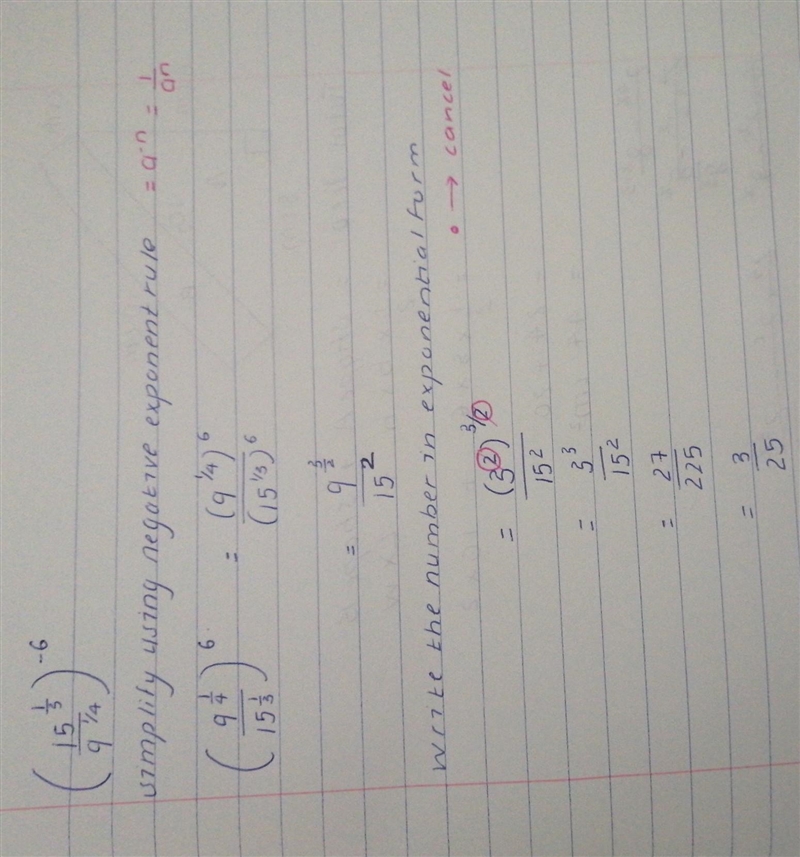 (15^(1/3) / 9^(1/4))^-6
simplify using negative exponent rule = a^-n = 1/a^n
(9^(1/4) / 15^(1/3))^6 = (9^(1/4))^6 / (15^(1/3))^6
= 9^(3/2) / 15^2
Write the number in exponential form
• → cancel
= (3^2)^(3/2) / 15^2
= 3^3 / 15^2
= 27 / 225
= 3 / 25